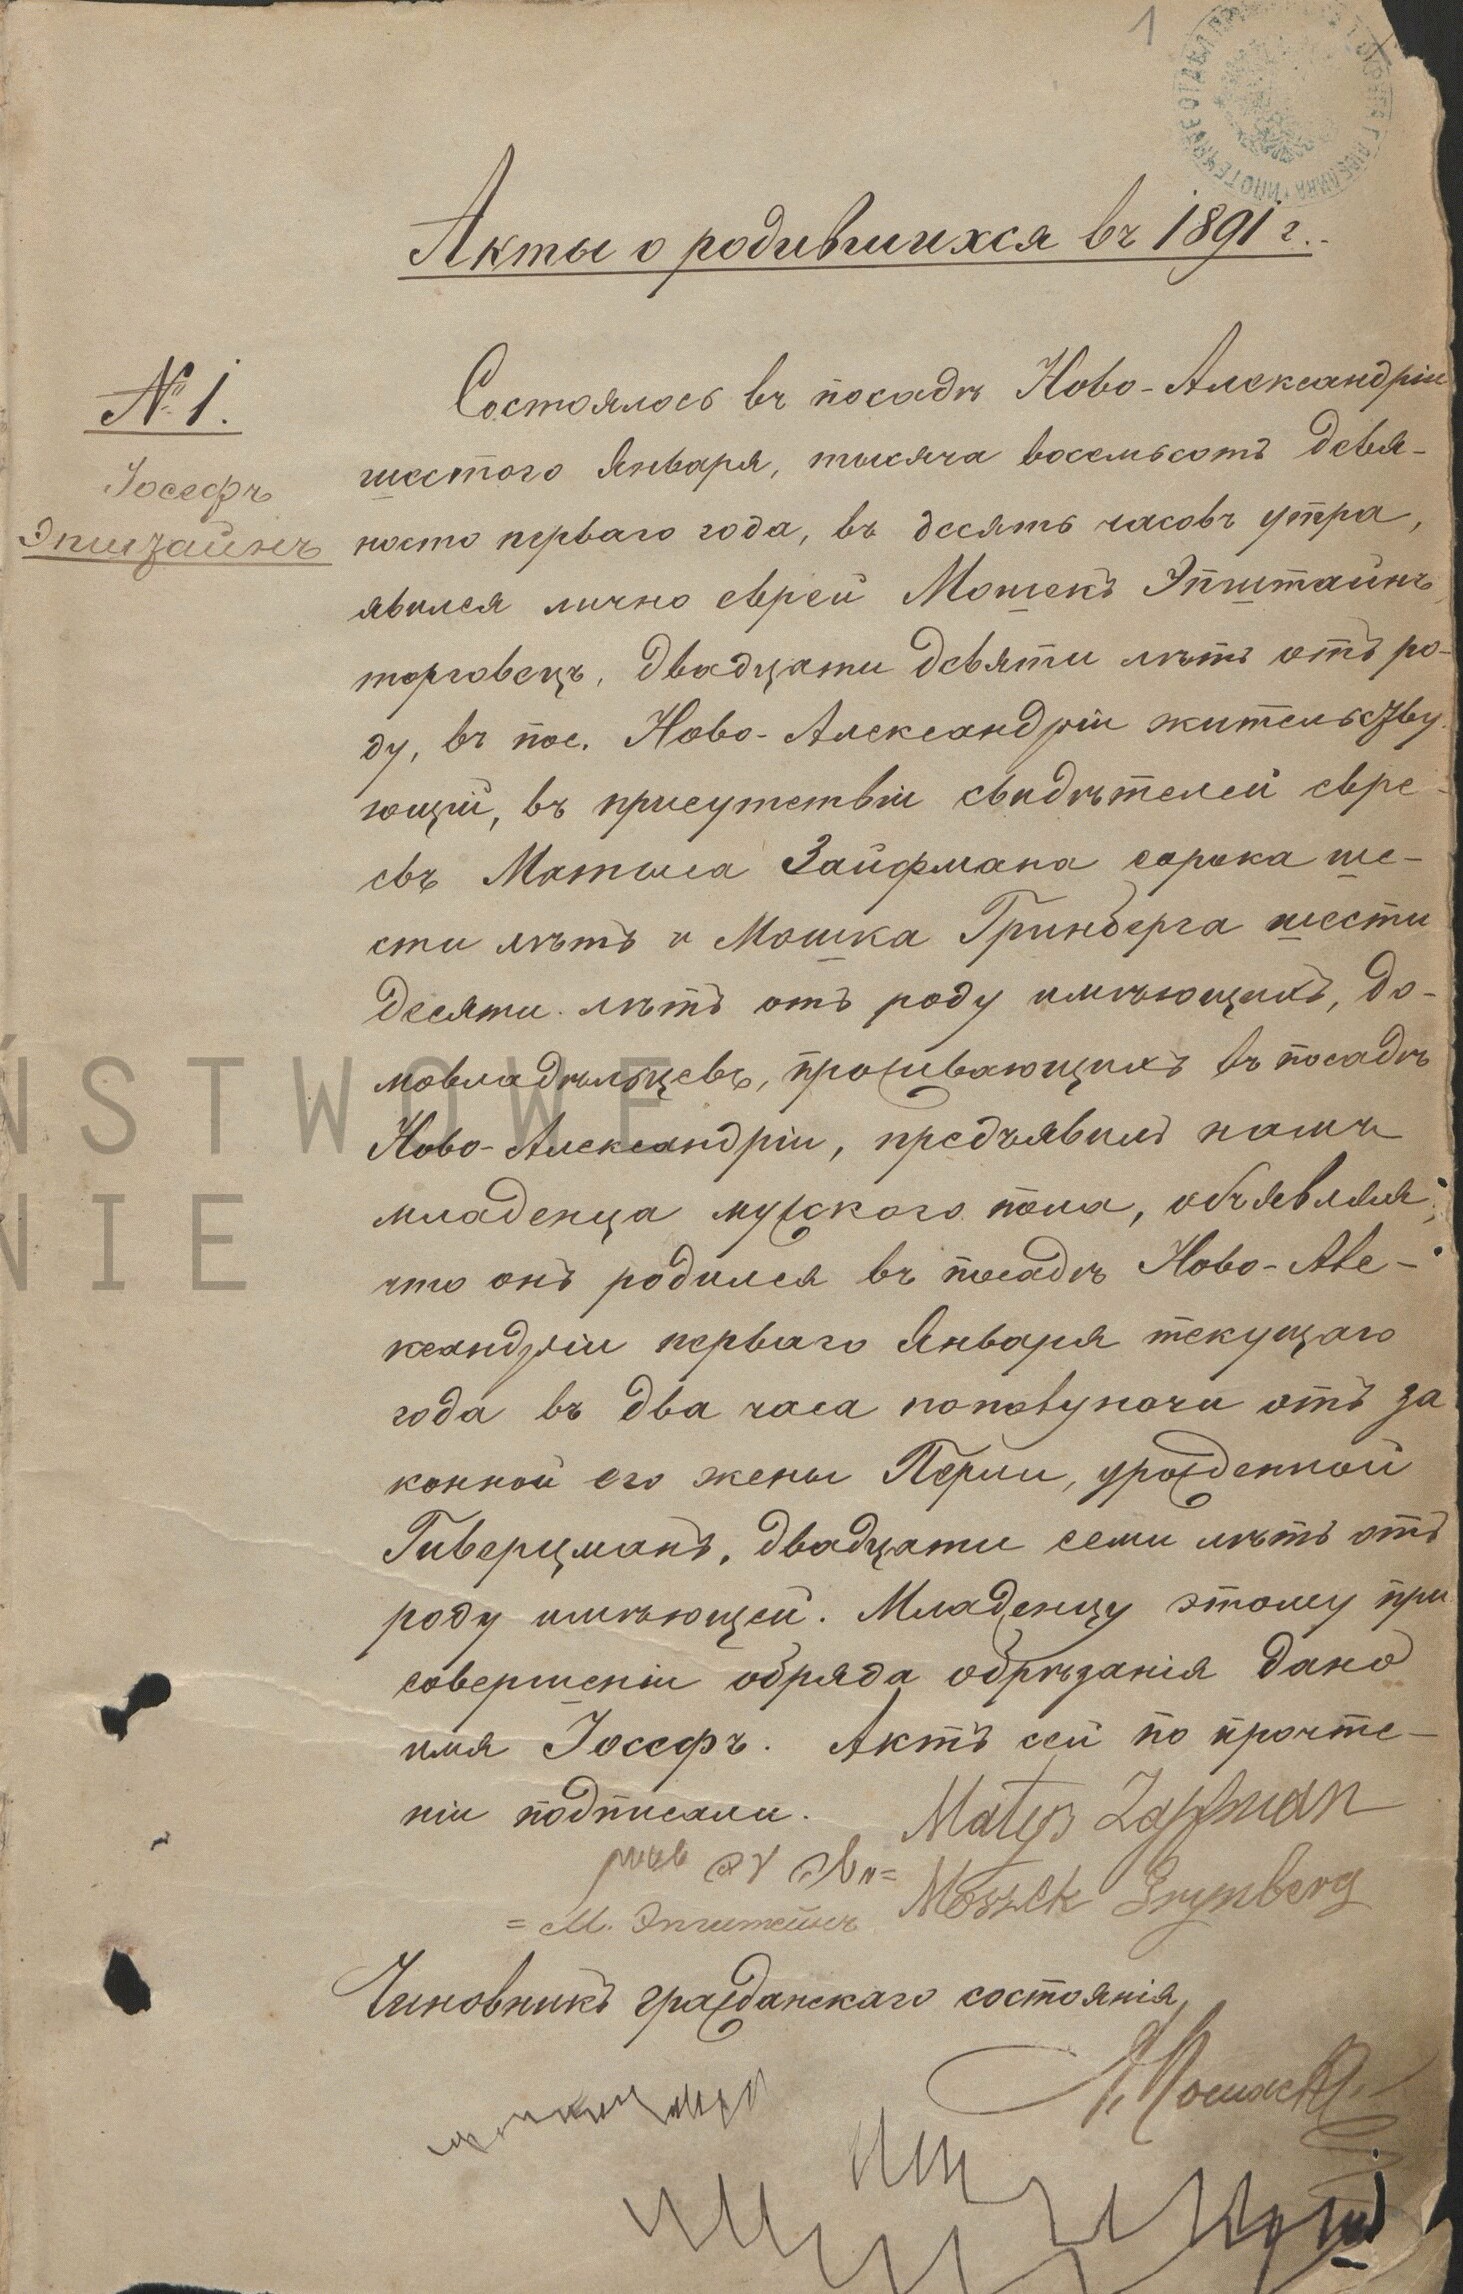 1
Акты о родившихся въ 1891 г.
№ 1.
Іосефъ
Эпштайнъ
Состоялось въ посадѣ Ново-Александріи
шестого Января, тысяча восемьсотъ девя-
носто перваго года, въ десять часовъ утра,
явился лично еврей Мошекъ Эпштайнъ,
торговецъ, двадцати девяти лѣтъ отъ ро-
ду, въ пос. Ново-Александріи жительству-
ющій, въ присутствіи свидѣтелей евре-
евъ Матыса Зайфмана сорока ше-
сти лѣтъ и Мошка Гринберга шести
десяти лѣтъ отъ роду имѣющихъ, до-
мовладѣльцевъ, проживающихъ въ посадѣ
Ново-Александріи, предъявилъ намъ
младенца мужского пола, объявляя,
что онъ родился въ посадѣ Ново-Але-
ксандріи перваго Января текущаго
года въ два часа пополуночи отъ за
конной его жены Перли, урожденной
Гиверцманъ, двадцати семи лѣтъ отъ
роду имѣющей. Младенцу этому при
совершеніи обряда обрѣзанія дано
имя Іосефъ. Актъ сей по прочте-
ніи подписали.
Matys Zayfman
= М. Эпштейнъ
Moszek Grynberg
Чиновникъ гражданскаго состоянія
ŃSTWOWE
NIE